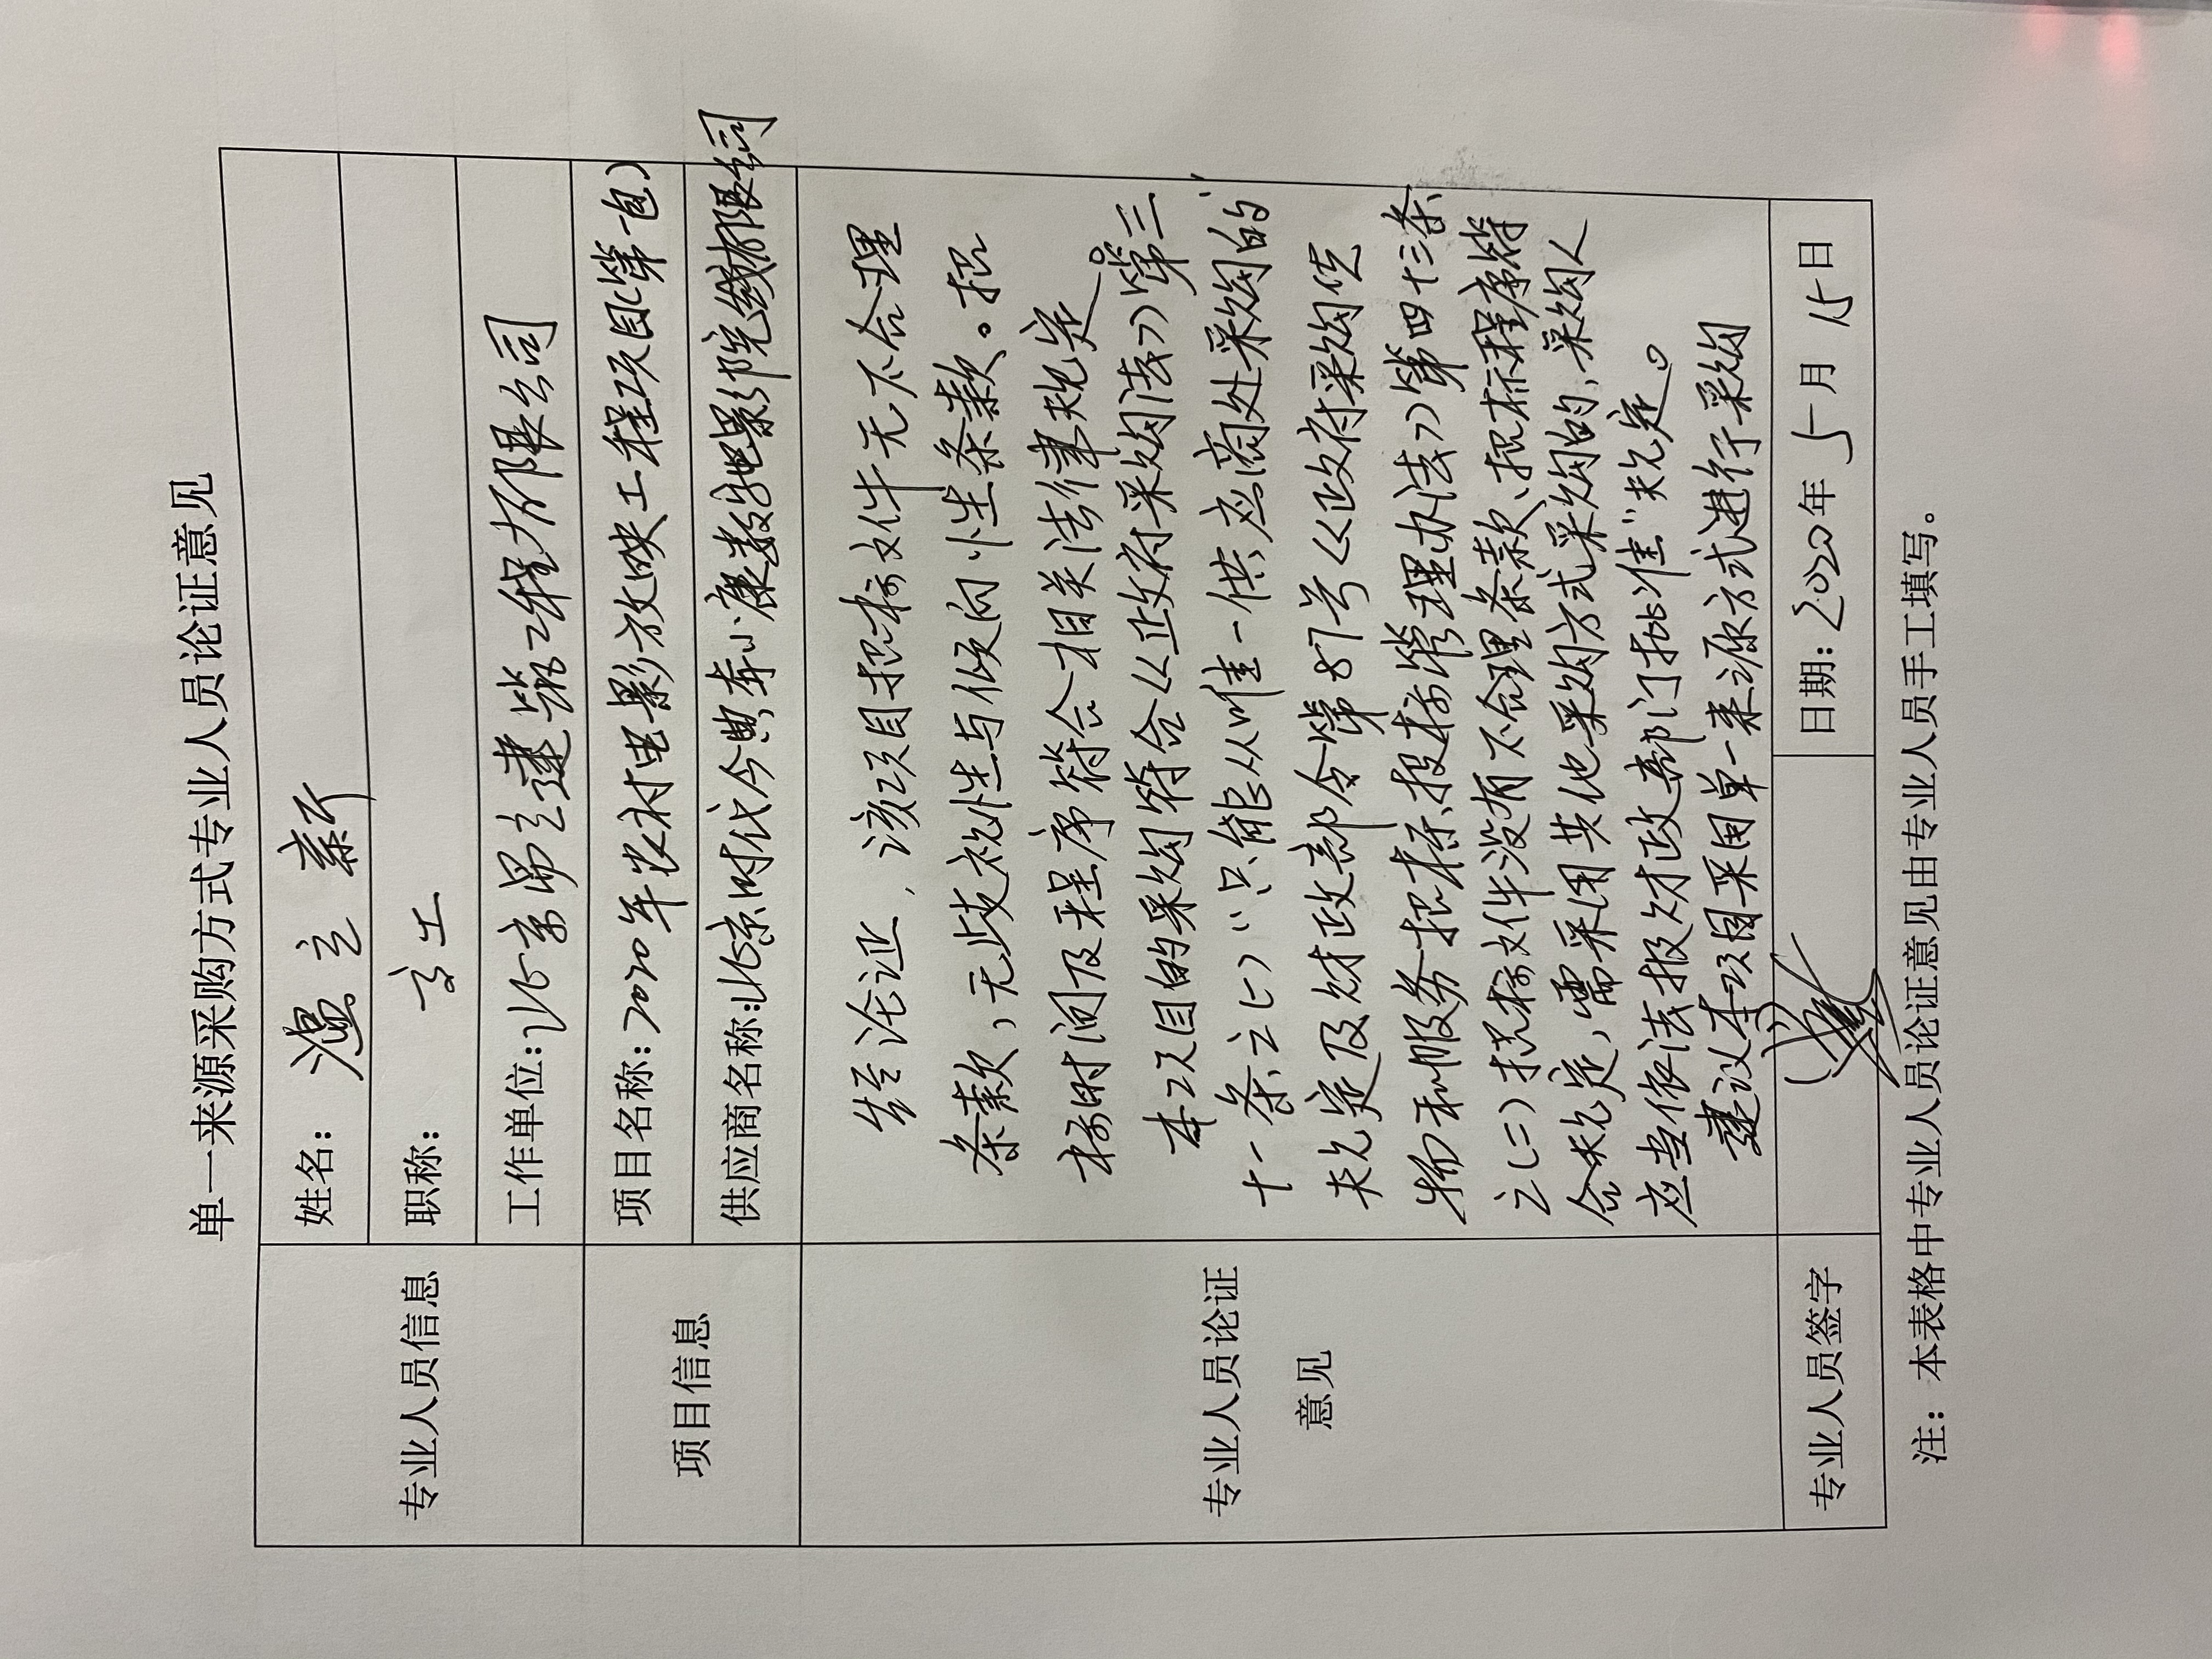 单一来源采购方式专业人员论证意见
专业人员信息
姓名：温立新
职称：高工
工作单位：北京昂立建筑工程有限公司
项目信息
项目名称：2020年农村电影放映工程项目(第一包)
供应商名称：北京时代今典奔小康数字电影院线有限公司
专业人员论证
意见
经论证，该项目招标文件无不合理
条款，无歧视性与倾向性条款。招
标时间及程序符合相关法律规定。
本项目的采购符合《政府采购法》第三
十一条之(一)“只能从唯一供应商处采购的”
规定及财政部令第87号《政府采购货
物和服务招标投标管理办法》第四十三条
之(二)招标文件没有不合理条款、招标程序符
合规定，需采用其他采购方式采购的，采购人
应当依法报财政部门批准”规定。
建议本项目采用单一来源方式进行采购
专业人员签字
日期：2020年5月15日
注：本表格中专业人员论证意见由专业人员手工填写。